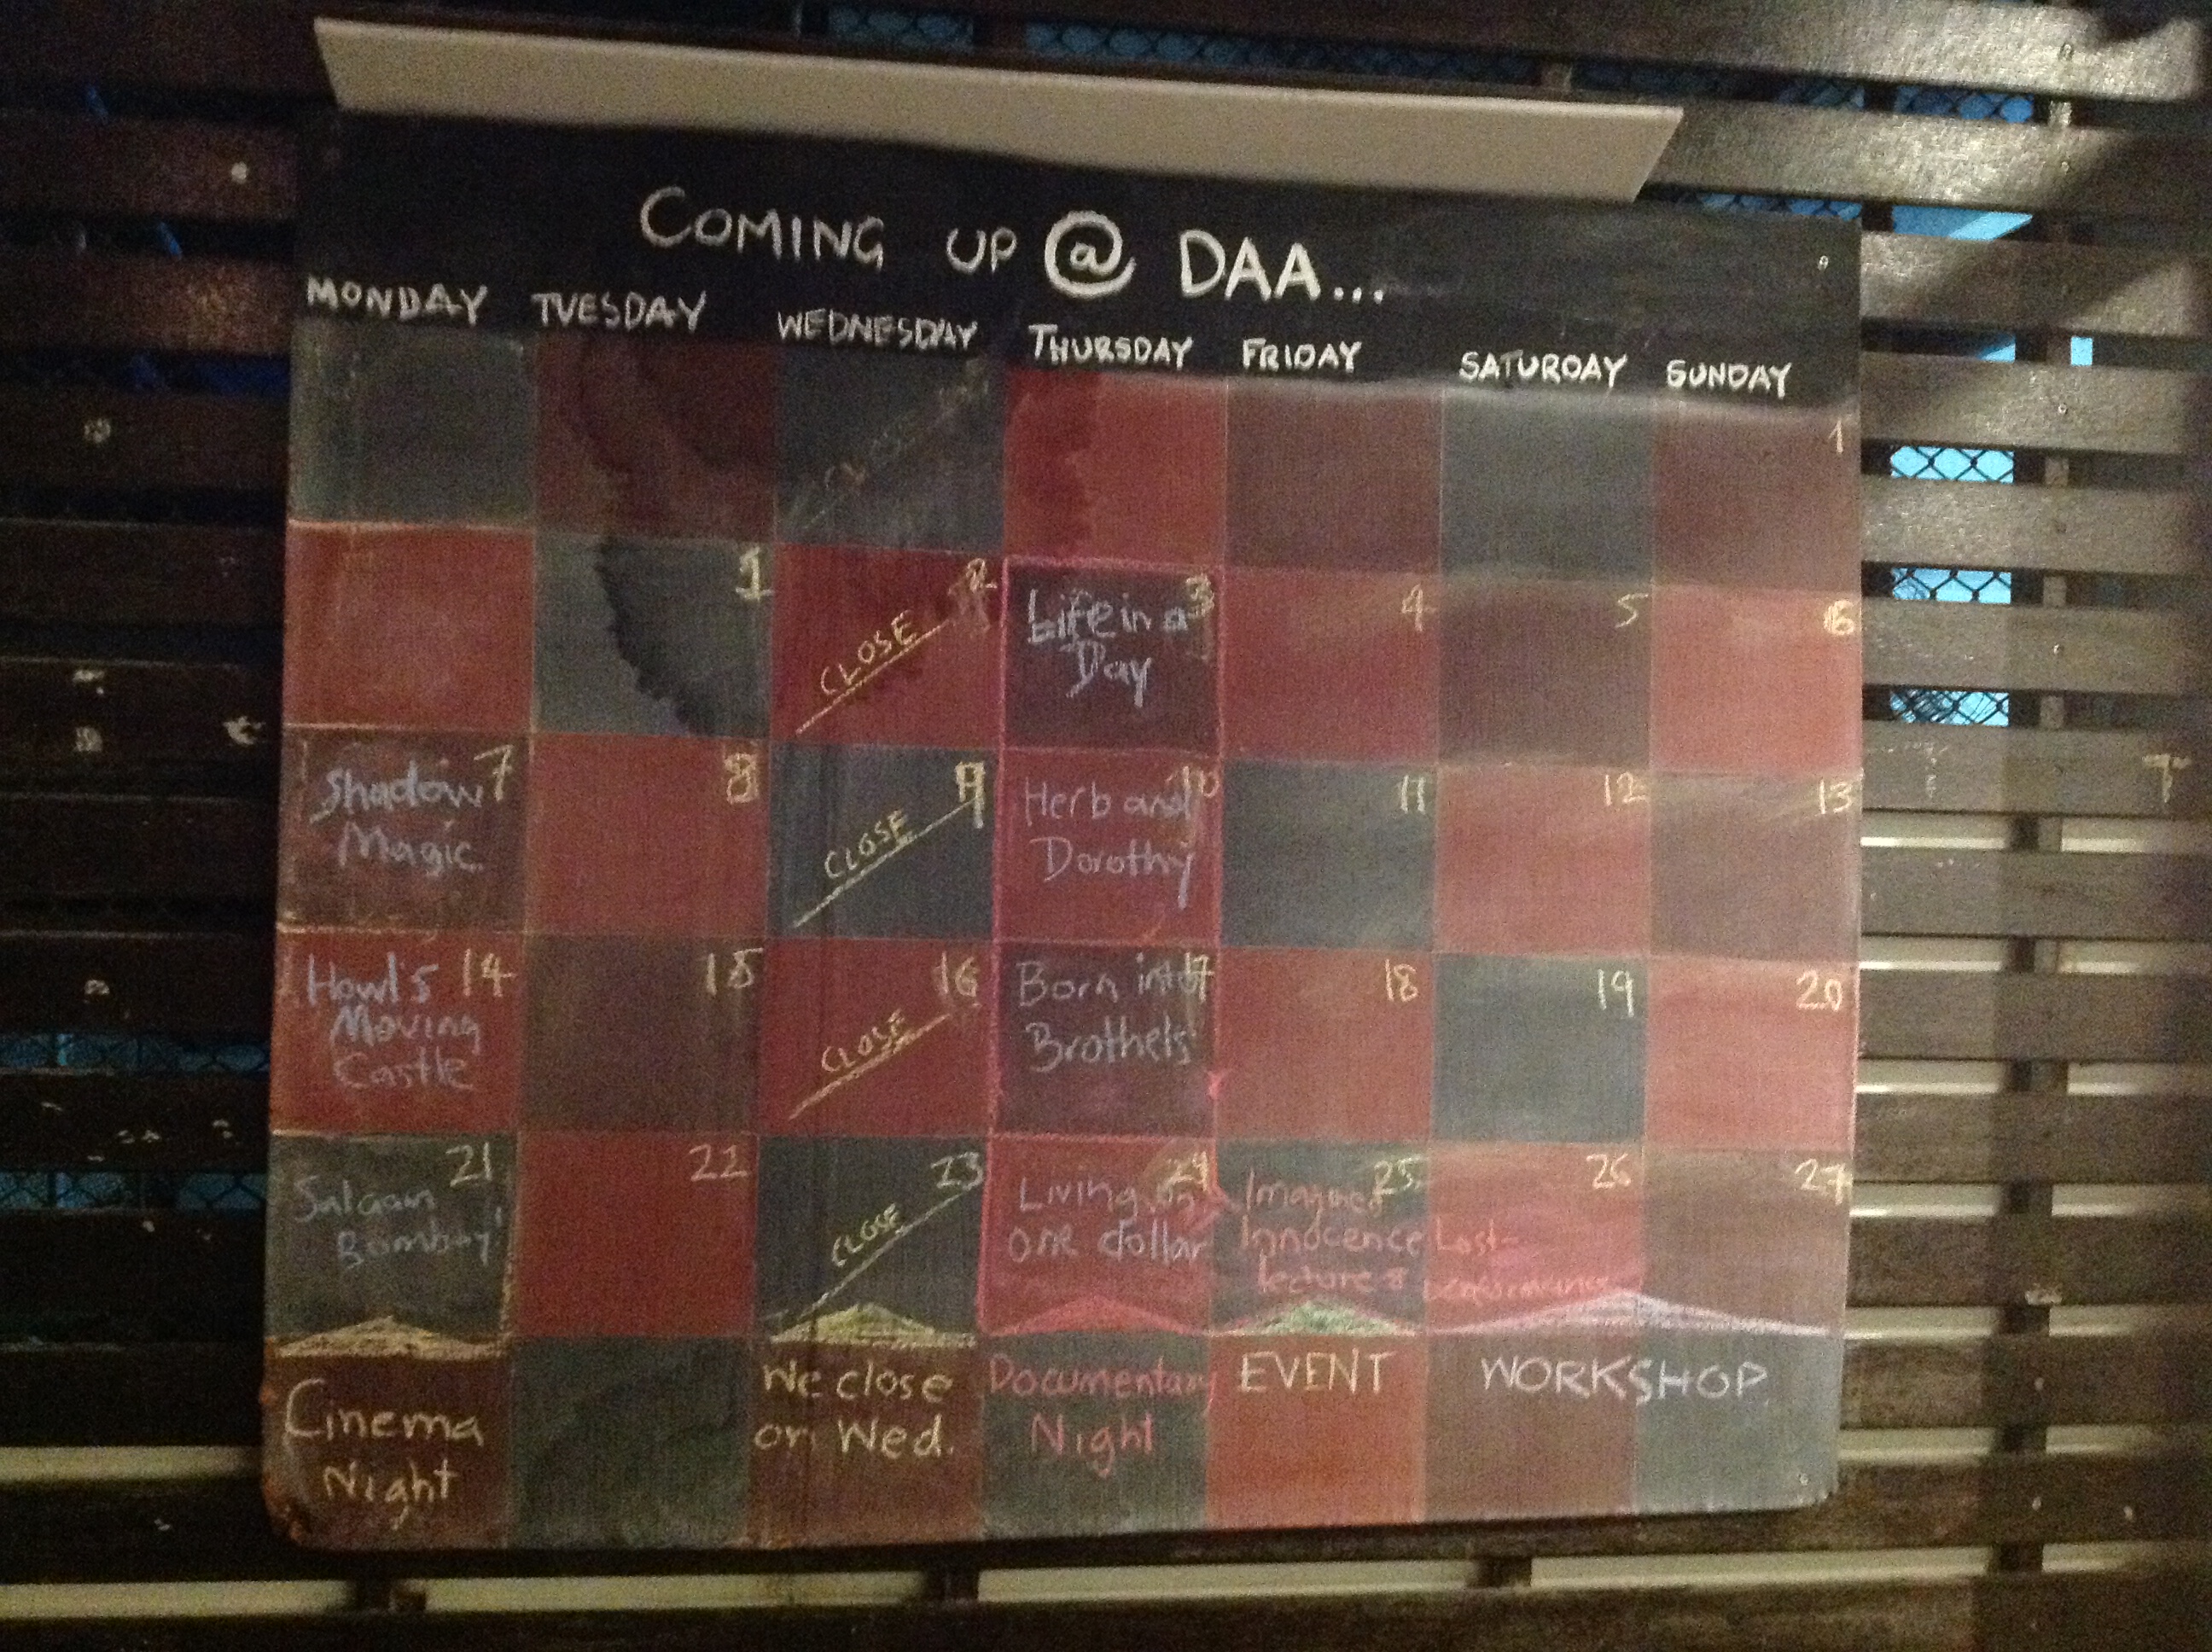 COMING UP @ DAA...
MONDAY TUESDAY WEDNESDAY THURSDAY FRIDAY SATURDAY SUNDAY
CLOSE
1
1 2 3 4 5 6
CLOSE
Life in a
Day
7 8 9 10 11 12 13
Shadow
Magic
CLOSE
Herb and
Dorothy
14 15 16 17 18 19 20
Howl's
Moving
Castle
CLOSE
Born into
Brothels
21 22 23 24 25 26 27
Salaam
Bombay!
CLOSE
Living on
one dollar
Innocence Lost-
lecture &
Cinema
Night
We close
on Wed.
Documentary
Night
EVENT
WORKSHOP